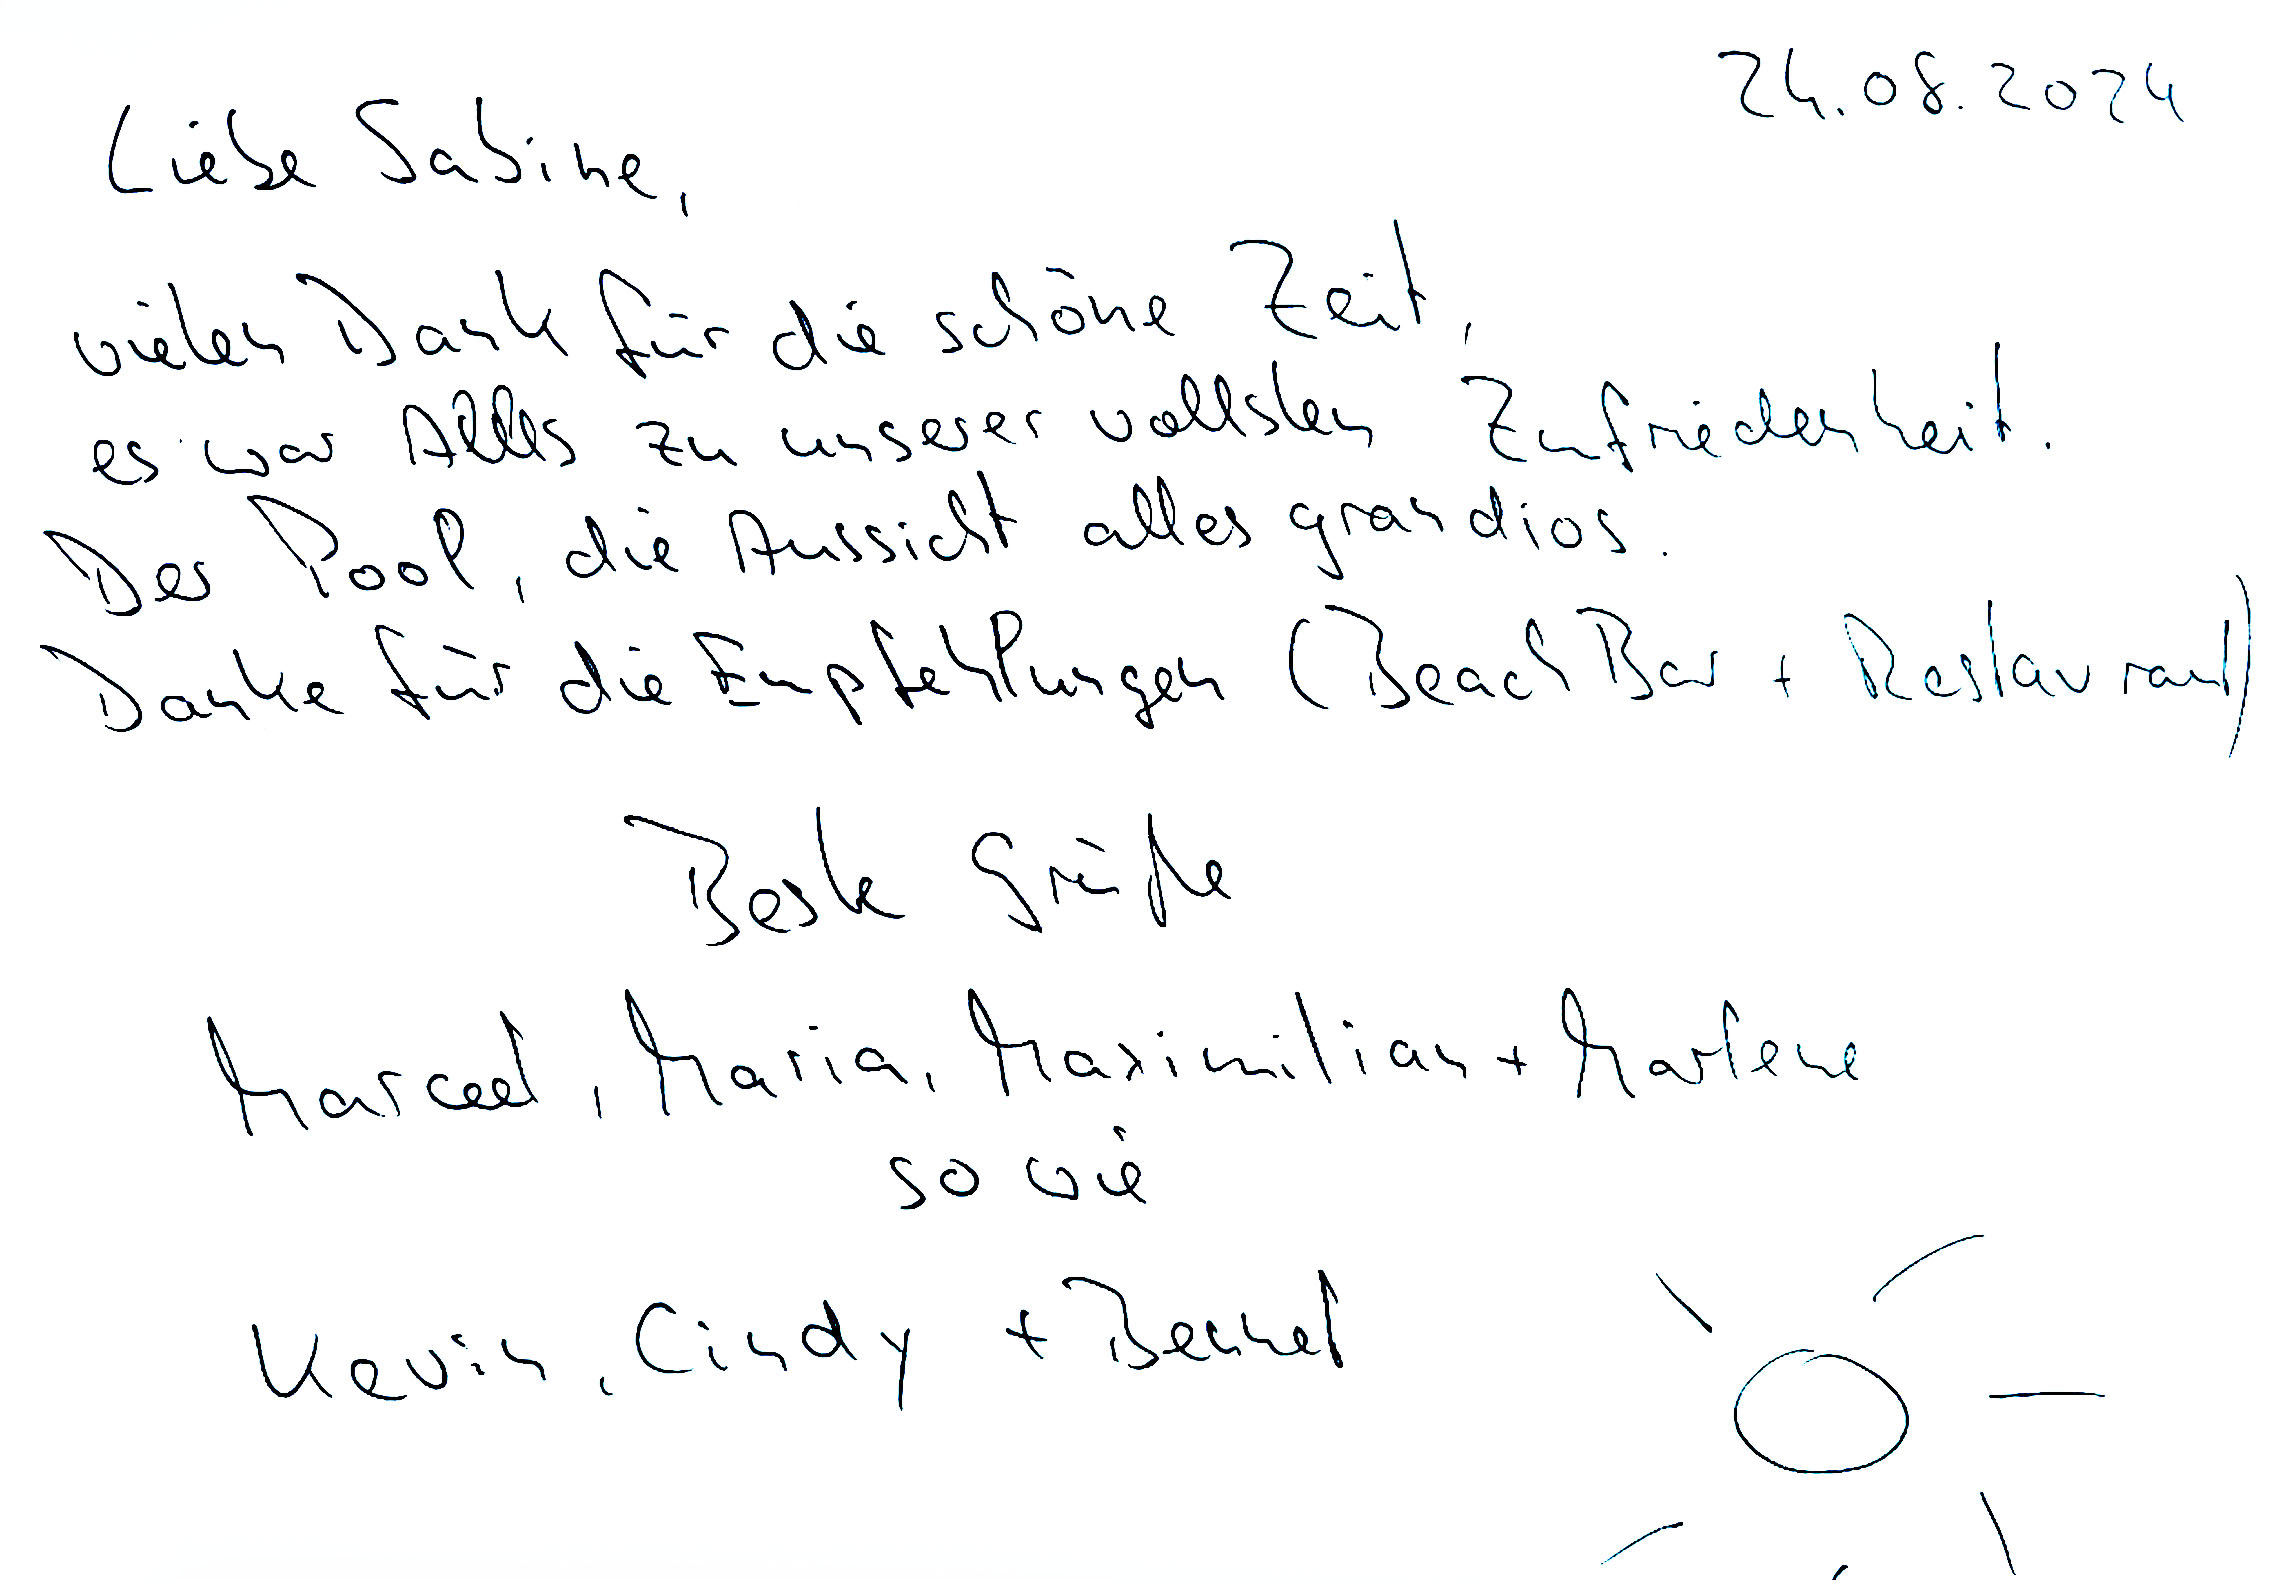 24.08.2024
Liebe Sabine,
vielen Dank für die schöne Zeit,
es war Alles zu unserer vollsten Zufriedenheit.
Der Pool, die Aussicht alles grandios.
Danke für die Empfehlungen (Beach Bar + Restaurant)
Beste Grüße
Marcel, Maria, Maximilian + Marlene
so wie
Kevin, Cindy + Bennet